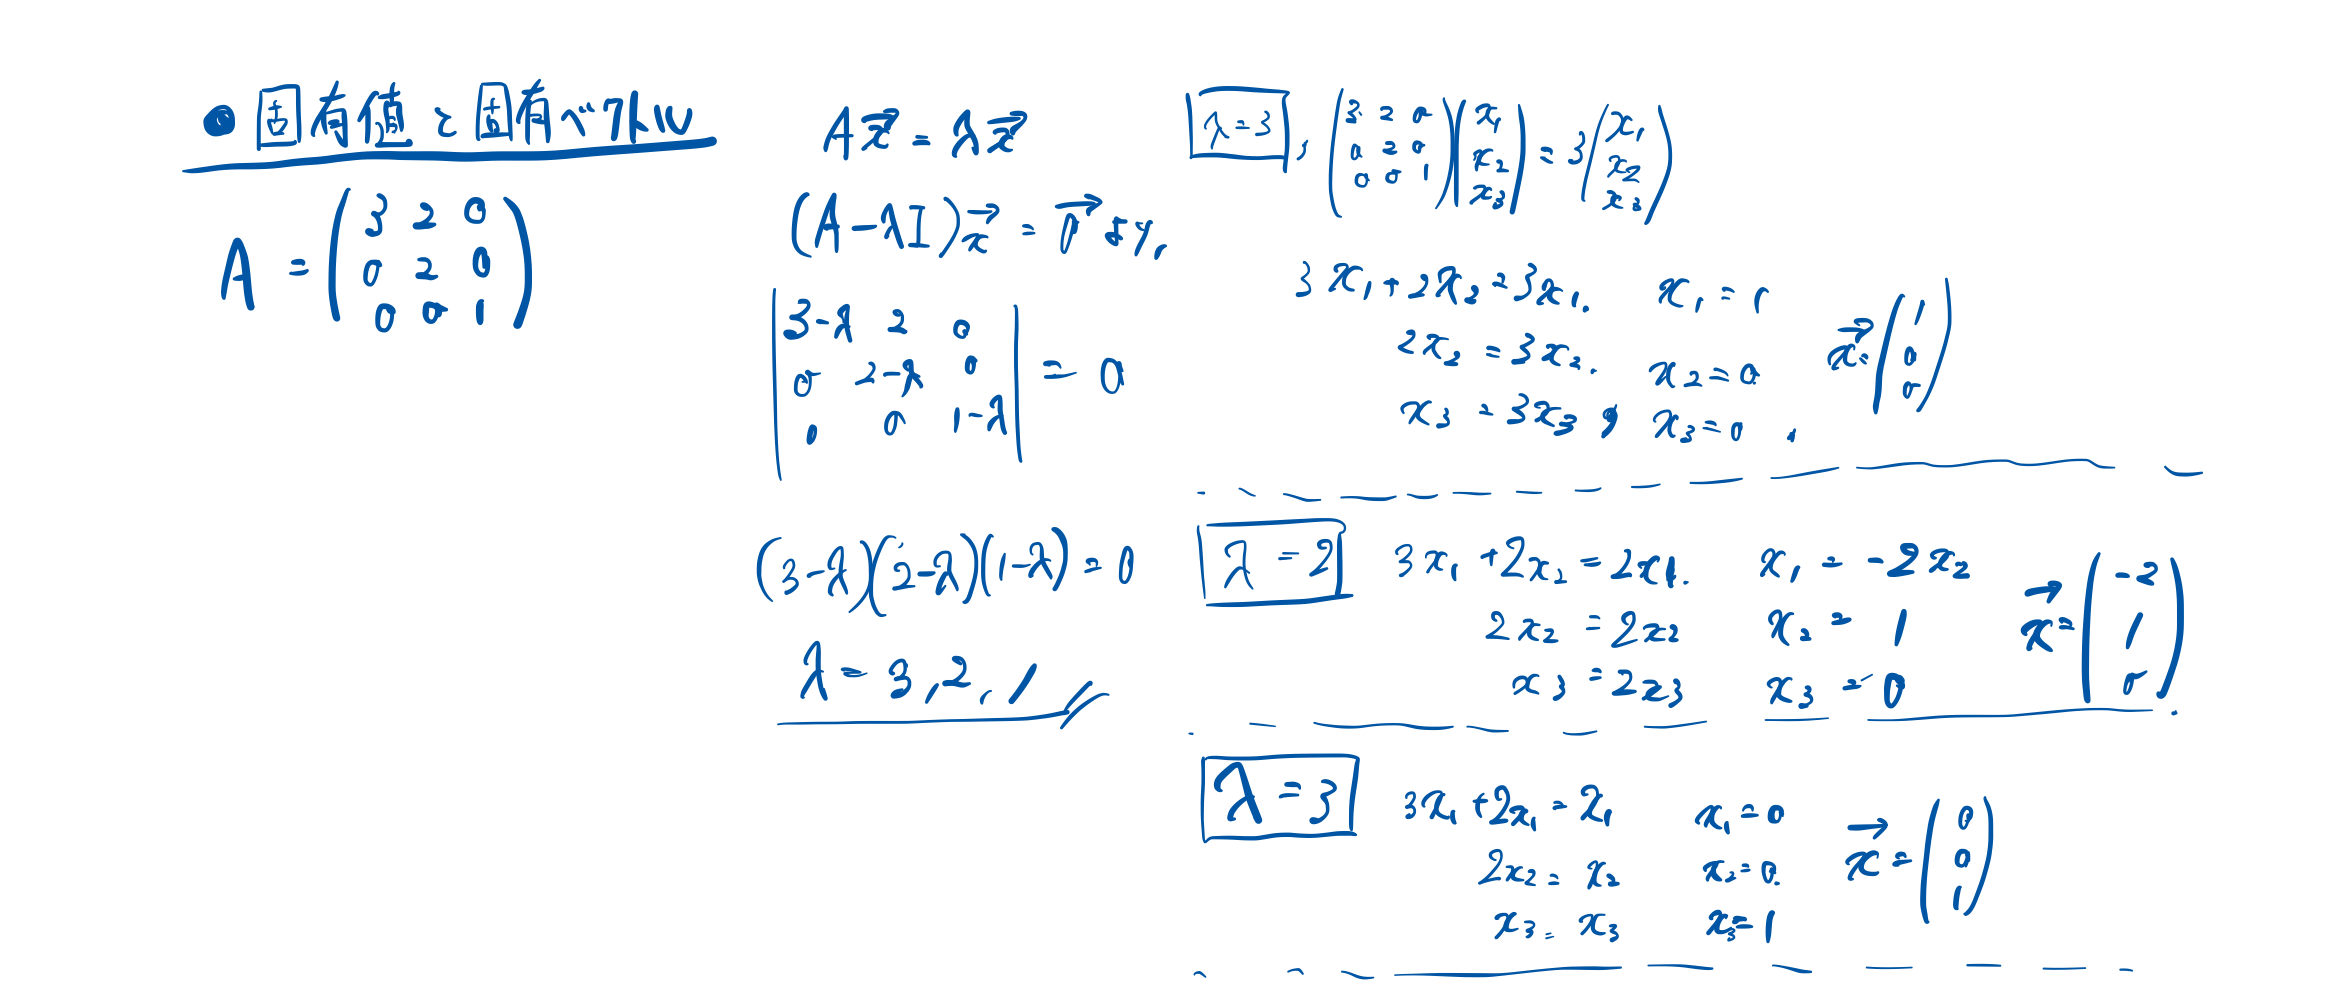 ● 固有値と固有ベクトル
A = (3 2 0
0 2 0
0 0 1)
Ax⃗ = λx⃗
(A-λI)x⃗ = 0⃗ より,
|3-λ 2 0
0 2-λ 0
0 0 1-λ| = 0
(3-λ)(2-λ)(1-λ) = 0
λ = 3, 2, 1
λ=3, (3 2 0
0 2 0
0 0 1)(x₁
x₂
x₃) = 3(x₁
x₂
x₃)
3x₁+2x₂=3x₁. x₁=1
2x₂=3x₂. x₂=0
x₃=3x₃, x₃=0. x⃗=(1
0
0)
λ=2 3x₁+2x₂=2x₁. x₁=-2x₂
2x₂=2x₂ x₂=1
x₃=2x₃ x₃=0 x⃗=(-2
1
0)
λ=3 3x₁+2x₁=x₁ x₁=0
2x₂=x₂ x₂=0.
x₃=x₃ x₃=1 x⃗=(0
0
1)